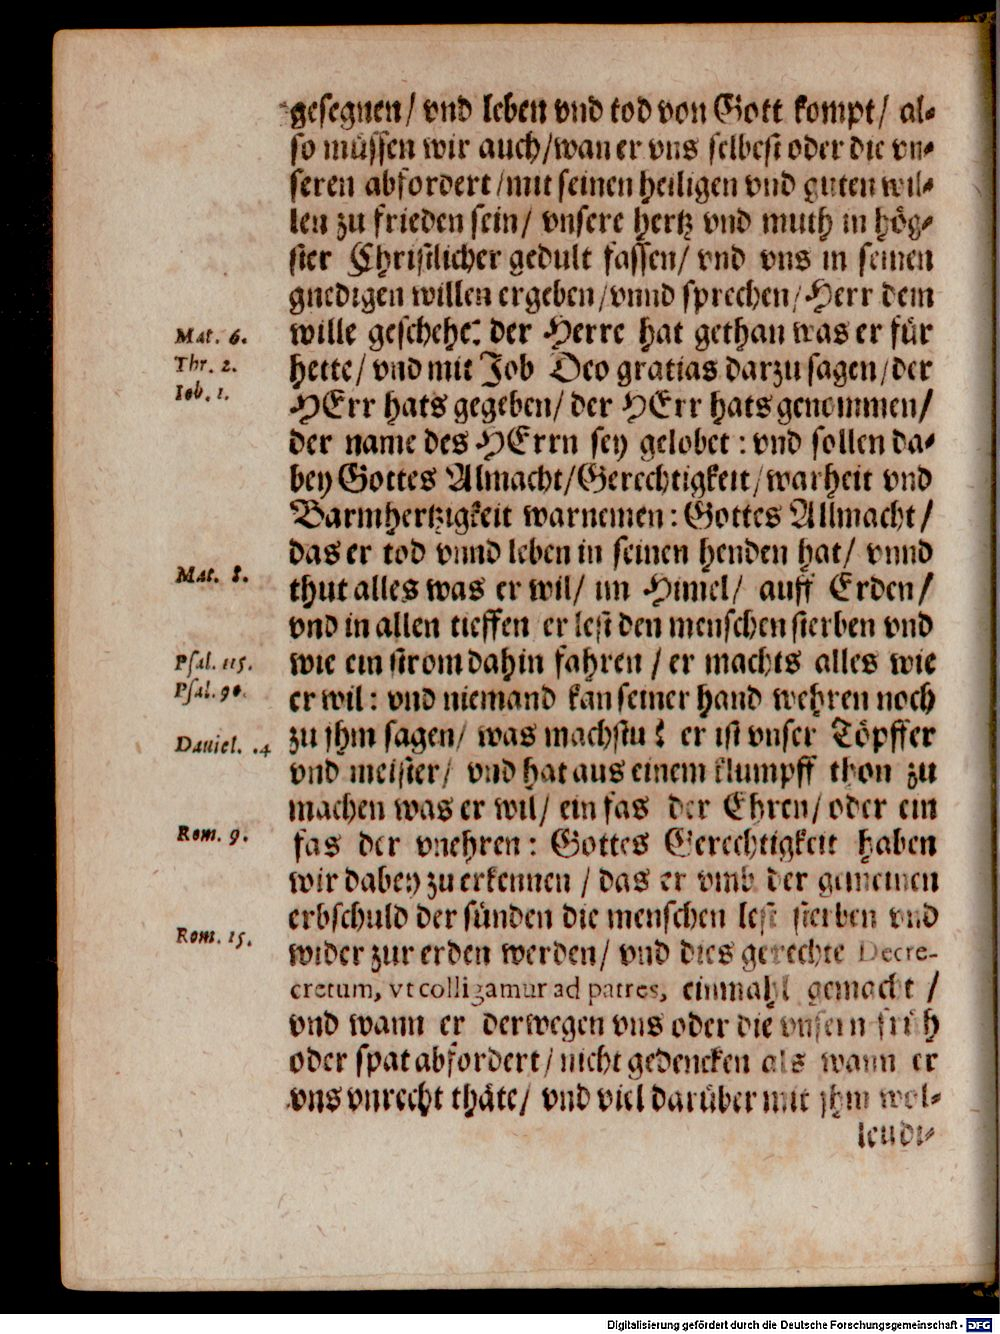 gesegnen/ vnd leben vnd tod von Gott kompt/ al-
so müssen wir auch/wan er vns selbest oder die vn-
seren abfordert/mit seinen heiligen vnd guten wil-
len zu frieden sein/ vnsere hertz vnd muth in hög-
ster Christlicher gedult fassen/ vnd vns in seinen
gnedigen willen ergeben/vnnd sprechen/Herr dem
Mat. 6.
wille geschehe: der Herre hat gethan was er für
Thr. 2.
hette/ vnd mit Job Deo gratias darzu sagen/der
Iob. 1.
HErr hats gegeben/ der HErr hats genommen/
der name des HErrn sey gelobet: vnd sollen da-
bey Gottes Almacht/Gerechtigkeit/warheit vnd
Barmhertzigkeit warnemen: Gottes Allmacht/
das er tod vnnd leben in seinen henden hat/ vnnd
Mat. 8.
thut alles was er wil/ im Himel/ auff Erden/
vnd in allen tieffen er lest den menschen sterben vnd
Psal. 115.
wie ein strom dahin fahren / er machts alles wie
Psal. 90.
er wil: vnd niemand kan seiner hand wehren noch
Daniel. .4
zu jhm sagen/ was machstu? er ist vnser Töpffer
vnd meister/ vnd hat aus einem klumpff thon zu
machen was er wil/ ein fas der Ehren/ oder ein
Rom. 9.
fas der vnehren: Gottes Gerechtigkeit haben
wir dabey zu erkennen / das er vmb der gemeinen
erbschuld der sünden die menschen lest sterben vnd
Rom. 15.
wider zur erden werden/ vnd dies gerechte Decre-
cretum, vt colligamur ad patres, einmahl gemacht /
vnd wann er derwegen vns oder die vnsern früh
oder spat abfordert/ nicht gedencken als wann er
vns vnrecht thäte/ vnd viel darüber mit jhm wol-
lendi-
Digitalisierung gefördert durch die Deutsche Forschungsgemeinschaft - DFG